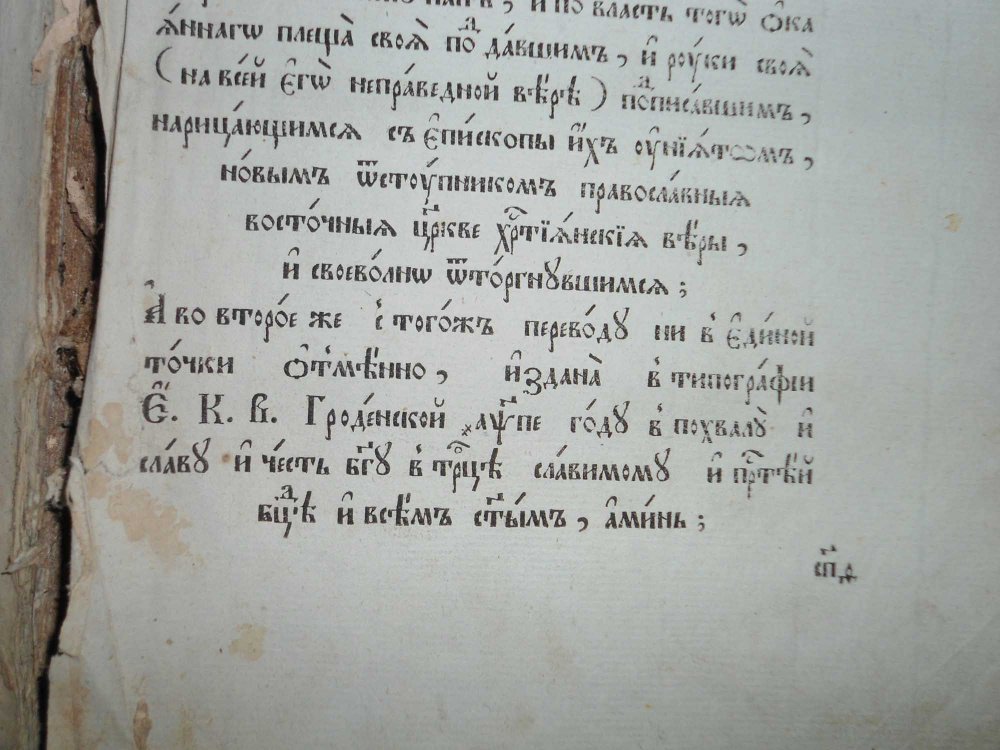 и по власть тогѡ ѻ҆ка
ѧ҆ннагѡ плеща̀ своѧ̀ поⷣда́вшимъ, и҆ роу́ки своѧ̀
(на все́й є҆гѡ̀ непра́ведной вѣ́рѣ) поⷣписа́вшимъ,
нарица́ющимсѧ съ є҆пи́скопы и҆́хъ оу҆нїѧ́тѡмъ,
но́вымъ ѿстоу́пникомъ правосла́вныѧ
восто́чныѧ цр҃кве хрⷭ҇тїѧ́нскїѧ вѣ́ры,
и҆ своево́лнѡ ѿто́ргнꙋвшимсѧ;
А҆ во второ́е же с̾ того́жъ перево́дꙋ ни в̾ є҆ди́ной
то́чки ѻ҆тмѣ́нно, и҆здана̀ в̾ типогра́фїи
Є҆. К. В. Гроде́нской ҂аѱ҃пе го́дꙋ в̾ похвалꙋ̀ и҆
сла́вꙋ и҆ че́сть бг҃ꙋ в̾ трⷪ҇цѣ сла́вимомꙋ и҆ прⷭ҇тѣ́й
бцⷣѣ и҆ всѣ́мъ ст҃ы́мъ, а҆ми́нь;
сп҃д